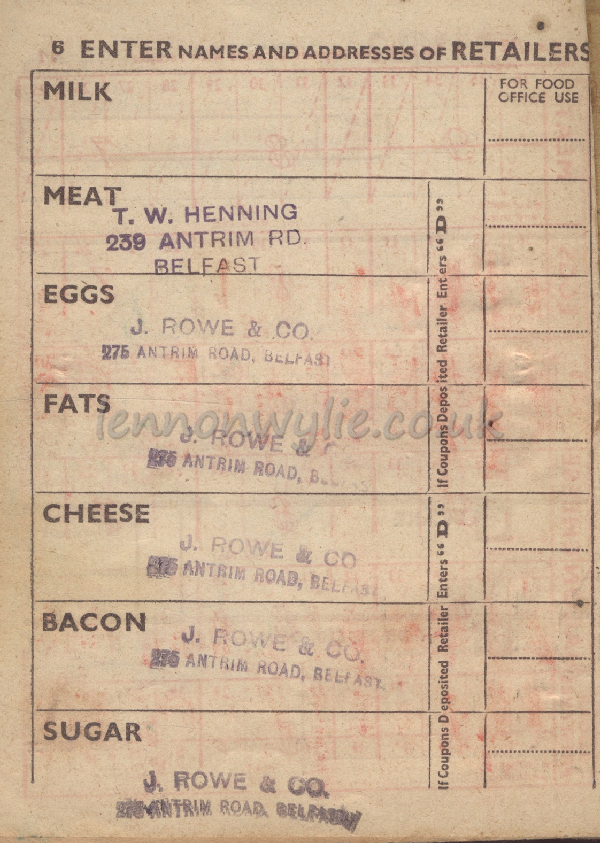 6 ENTER NAMES AND ADDRESSES OF RETAILERS
MILK
FOR FOOD
OFFICE USE
MEAT
T. W. HENNING
239 ANTRIM RD.
BELFAST
EGGS
J. ROWE & CO.
275 ANTRIM ROAD, BELFAST
FATS
lennonwylie.co.uk
J. ROWE &
275 ANTRIM ROAD,
CHEESE
J. ROWE & CO
275 ANTRIM ROAD, BELFAST
BACON
J. ROWE & CO.
275 ANTRIM ROAD, BELFAST
SUGAR
J. ROWE & CO.
275 ANTRIM ROAD, BELFAST
If Coupons Deposited Retailer Enters "D"
If Coupons Deposited Retailer Enters "D"